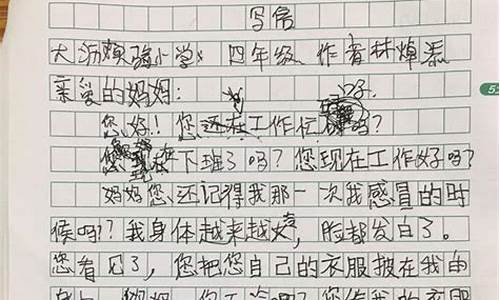 写信
大沥实验小学 四年级 作者林焯
亲爱的妈妈:
您好!您还在工作忙吗?
下班了吗?您现在工作好吗?
妈妈您还记得我那一次我感冒的时
候吗?我身体越来越 ,脸都发白了。
您看见了,您把您自己的衣服披在我的
身上